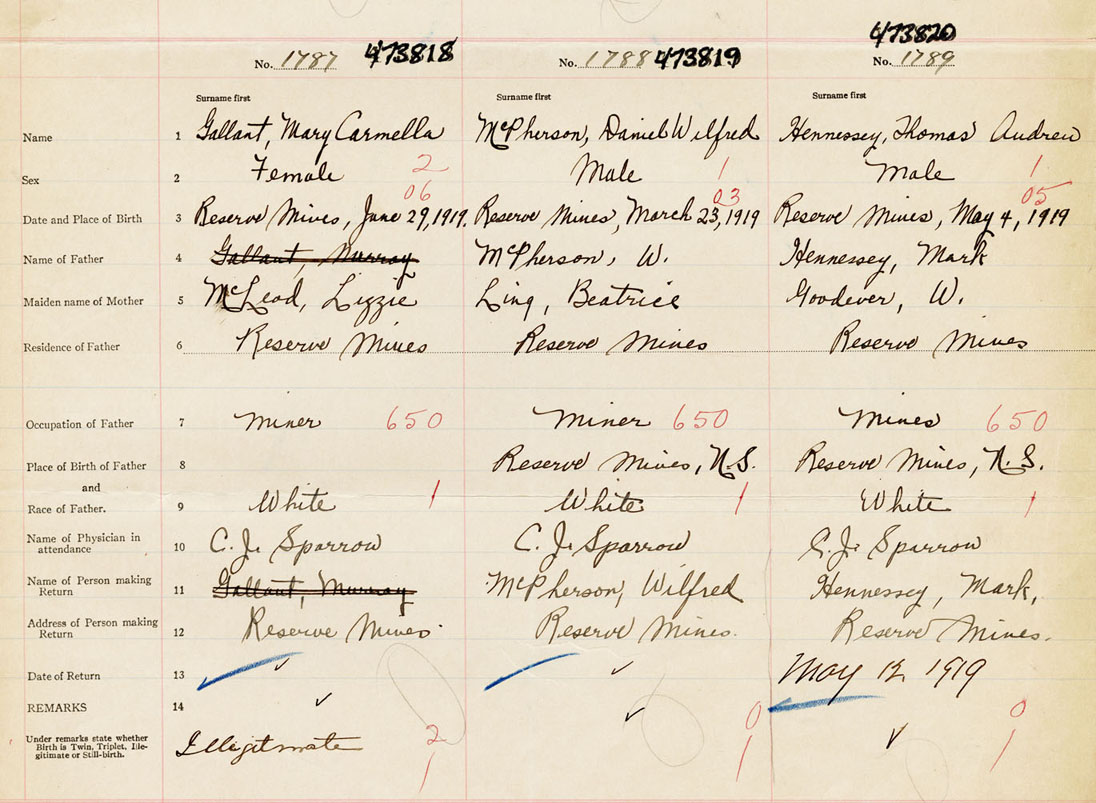 473820
No. 1787 473818 No. 1788 473819 No. 1789
Surname first Surname first Surname first
Name 1 Gallant, Mary Carmella McPherson, Daniel Wilfred Hennessey, Thomas Andrew
Sex 2 Female 2 Male 1 Male 1
06 03 05
Date and Place of Birth 3 Reserve Mines, June 29, 1919. Reserve Mines, March 23, 1919 Reserve Mines, May 4, 1919
Name of Father 4 Gallant, Murray McPherson, W. Hennessey, Mark
Maiden name of Mother 5 McLeod, Lizzie Ling, Beatrice Goodever, W.
Residence of Father 6 Reserve Mines Reserve Mines Reserve Mines
Occupation of Father 7 Miner 650 Miner 650 Mines 650
Place of Birth of Father 8 Reserve Mines, N.S. Reserve Mines, N.S.
and
Race of Father. 9 White 1 White 1 White 1
Name of Physician in
attendance 10 C. J. Sparrow C. J. Sparrow C. J. Sparrow
Name of Person making
Return 11 Gallant, Murray McPherson, Wilfred Hennessey, Mark,
Address of Person making
Return 12 Reserve Mines. Reserve Mines. Reserve Mines.
Date of Return 13 May 12 1919
REMARKS 14 0 0
Under remarks state whether
Birth is Twin, Triplet, Ille-
gitimate or Still-birth. Illegitmate 2 1 1
1